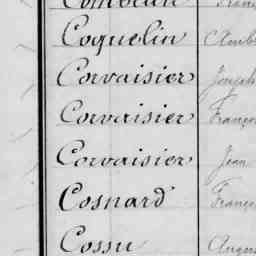 Coquelin
Corvaisier Joseph
Corvaisier Franço
Corvaisier Jean
Cosnard Franço
Cossu